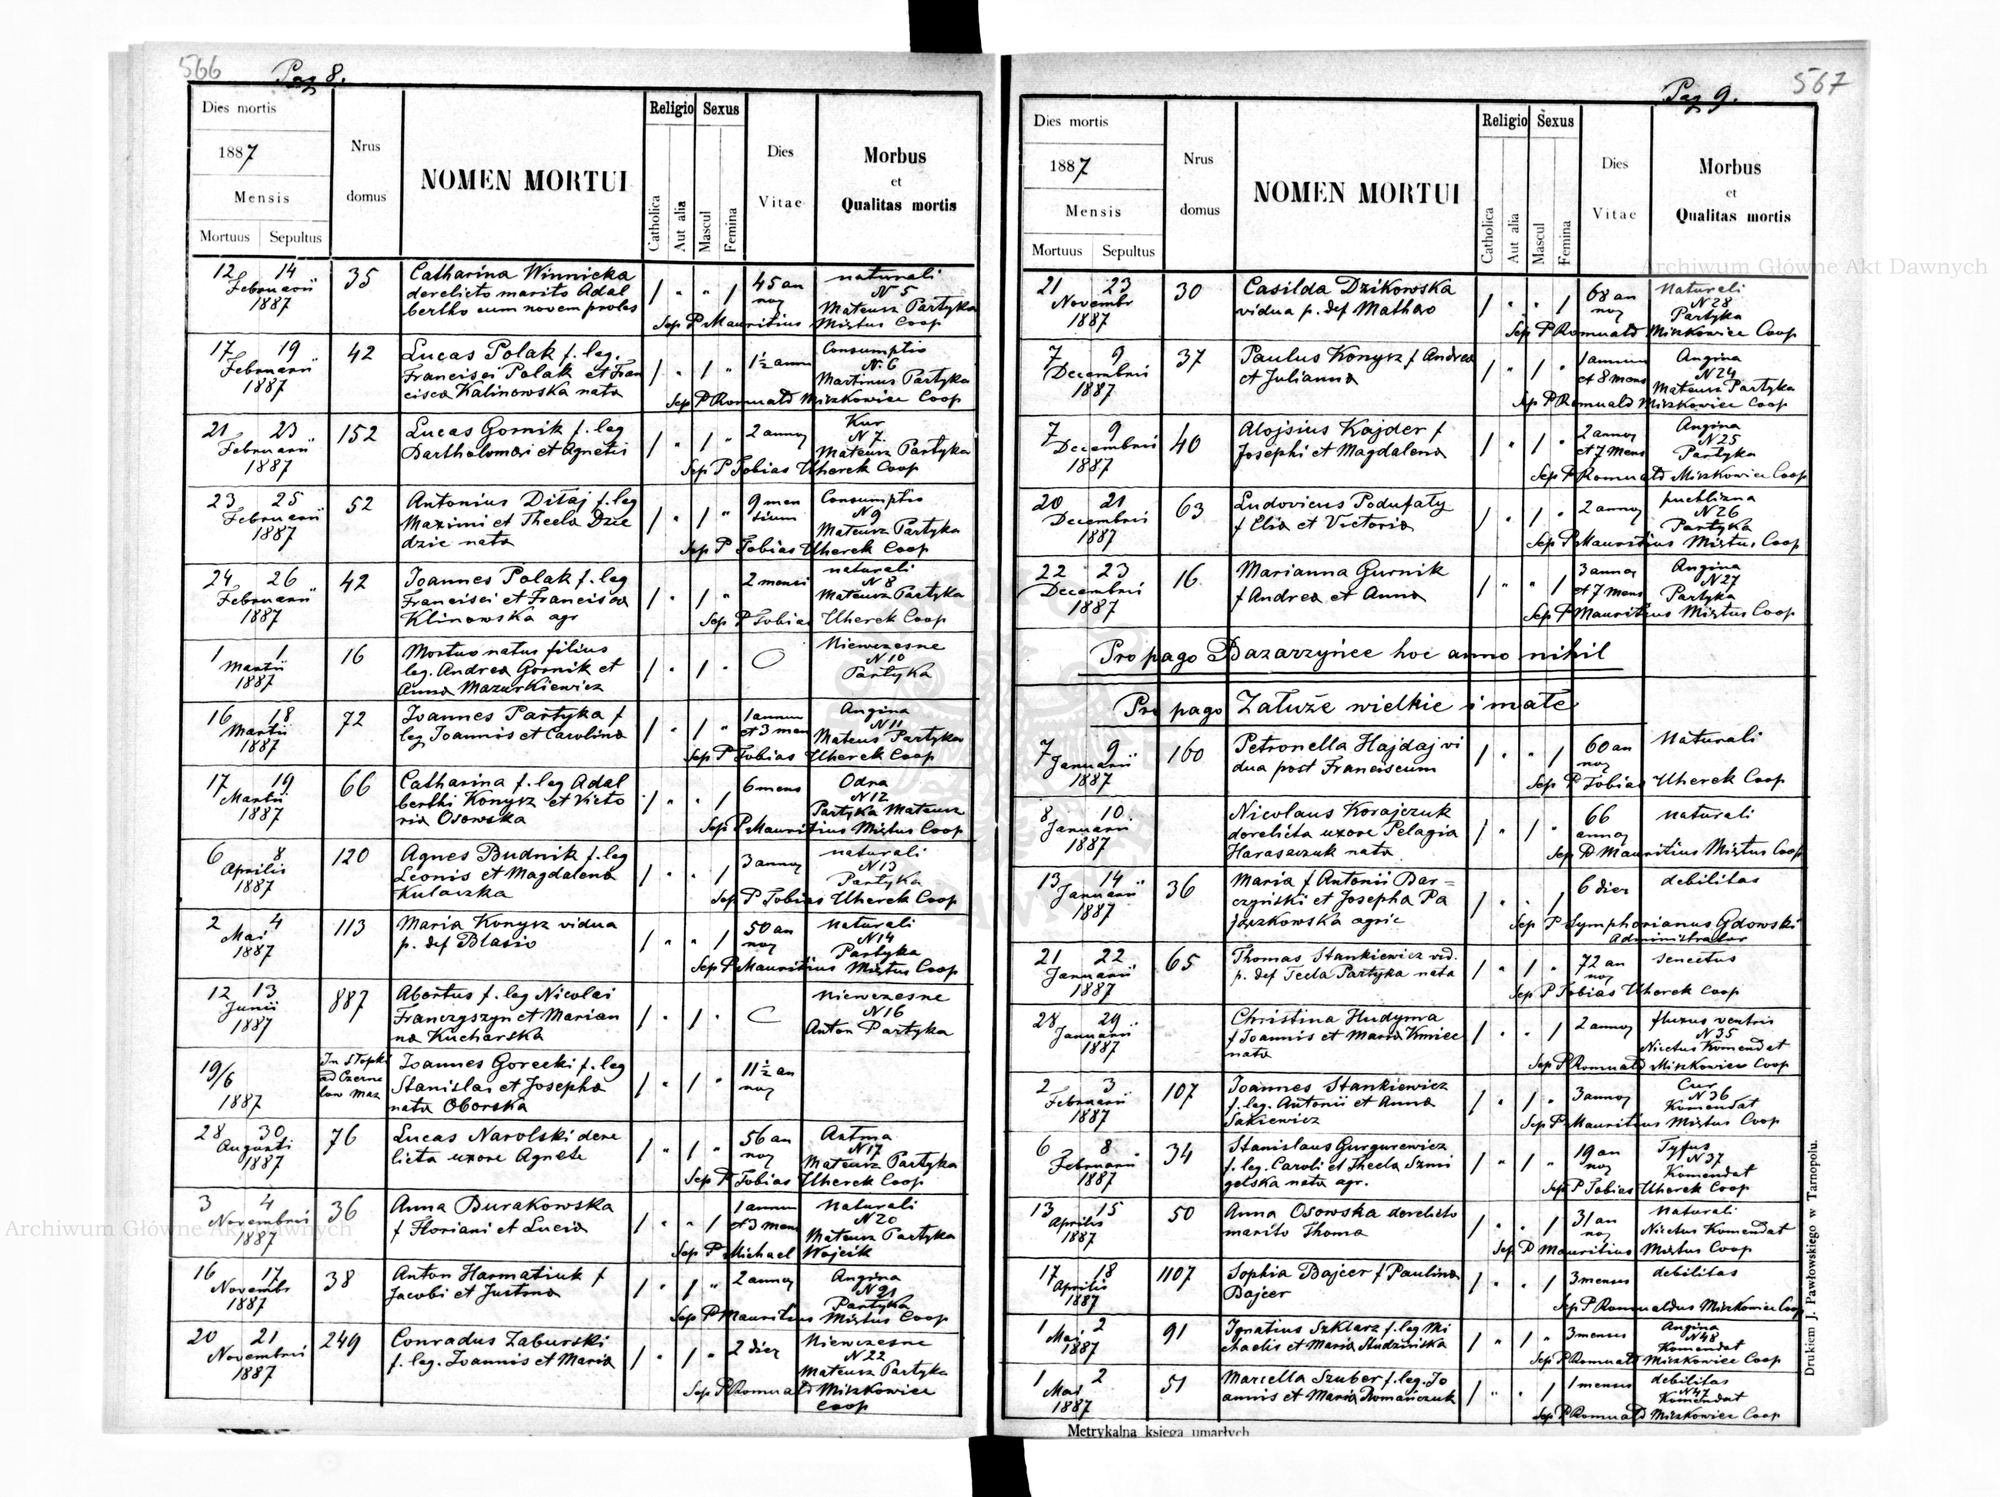 566
Pag 8.
Dies mortis
1887
Mensis
Mortuus Sepultus
Nrus
domus
NOMEN MORTUI
Religio
Catholica
Aut alia
Sexus
Mascul
Femina
Dies
Vitae
Morbus
et
Qualitas mortis
12 14
Februarii
1887
35
Catharina Winnicka
derelicto marito Adal
bertho cum novem proles
45 an
nog
naturali
N 5
Mateusz Partyka
Sep P Mauritius Mistus Coop
17 19
Februarii
1887
42
Lucas Polak f. leg.
Francisci Polak et Fran
cisca Kalinowska nata
1½ anni
Consumptio
N. 6
Martinus Partyka
Sep P Romuald Miszkowice Coop
21 23
Februarii
1887
152
Lucas Gornik f. leg
Bartholomai et Agnetis
2 annog
Kur
N 7.
Mateusz Partyka
Sep P Tobias Uherek Coop
23 25
Februarii
1887
52
Antonius Ditaj f. leg
Maximi et Thecla Dzie
dzic nata
9 men
sium
Consumptio
N 9
Mateusz Partyka
Sep P Tobias Uherek Coop
24 26
Februarii
1887
42
Joannes Polak f. leg
Francisci et Francisca
Klinowska agr
2 mensi
naturali
N 8
Mateusz Partyka
Sep P Tobias Uherek Coop
1 1
Martii
1887
16
Mortuo natus filius
leg. Andrea Gornik et
Anna Mazurkiewicz
Niewczesne
N 10
Partyka
16 18
Martii
1887
72
Joannes Partyka f
leg Joannis et Carolina
1 annum
et 3 men
Angina
N 11
Mateus Partyka
Sep P Tobias Uherek Coop
17 19
Martii
1887
66
Catharina f. leg Adal
berthi Konysz et Victo
ria Osowska
6 mens
Odra
N 12
Partyka Mateusz
Sep P Mauritius Mistus Coop
6 8
Aprilis
1887
120
Agnes Budnik f. leg
Leonis et Magdalena
Kulaszka
3 annog
naturali
N 13
Partyka
Sep P Tobias Uherek Coop
2 4
Mai
1887
113
Maria Konysz vidua
p. def Blasio
50 an
nog
Naturali
N 14
Partyka
Sep P Mauritius Mistus Coop
12 13
Junii
1887
887
Abortus f. leg Nicolai
Franczyszyn et Marian
na Kucharska
Niewczesne
N 16
Anton Partyka
19/6
1887
In Stopki
ad Czerne
low Maz
Joannes Gorecki f. leg
Stanislai et Josepha
nata Oborska
11½ an
nog
28 30
Augusti
1887
76
Lucas Narolski dere
licta uxore Agnete
56 an
nog
Astma
N 17
Mateusz Partyka
Sep P Tobias Uherek Coop
3 4
Novembris
1887
36
Anna Burakowska
f Floriani et Lucia
1 annum
et 3 mens
Naturali
N 20
Mateusz Partyka
Sep P Michael Wojcik
16 17
Novembr
1887
38
Anton Harmatiuk f
Jacobi et Justina
2 annog
Angina
N 21
Partyka
Sep P Mauritius Mistus Coop
20 21
Novembris
1887
249
Conradus Zaburski
f. leg. Joannis et Maria
2 dier
Niewczesne
N 22
Mateusz Partyka
Sep P Romuald Miszkowice
Coop
Pag 9.
567
Dies mortis
1887
Mensis
Mortuus Sepultus
Nrus
domus
NOMEN MORTUI
Religio
Catholica
Aut alia
Sexus
Mascul
Femina
Dies
Vitae
Morbus
et
Qualitas mortis
21 23
Novembr
1887
30
Casilda Dzikowska
vidua p. def Mathao
68 an
nog
Naturali
N 28
Partyka
Sep P Romuald Miszkowice Coop
7 9
Decembris
1887
37
Paulus Konysz f Andrea
et Julianna
1 annum
et 8 mens
Angina
N 24
Mateusz Partyka
Sep P Romuald Miszkowice Coop
7 9
Decembris
1887
40
Alojsius Kajder f
Josephi et Magdalena
2 annog
et 7 Mens
Angina
N 25
Partyka
Sep P Romuald Miszkowice Coop
20 21
Decembris
1887
63
Ludovicus Podufaty
f Elia et Victoria
2 annog
puchlizna
N 26
Partyka
Sep P Mauritius Mistus Coop
22 23
Decembris
1887
16
Marianna Gurnik
f Andrea et Anna
3 annog
et 7 Mens
Angina
N 27
Partyka
Sep P Mauritius Mistus Coop
Pro pago Bazarzyńce hoc anno nihil
Pro pago Załuże wielkie i małe
7 9
Januarii
1887
160
Petronella Hajdaj vi
dua post Franciscum
60 an
nog
Naturali
Sep P Tobias Uherek Coop
8 10.
Januarii
1887
Nicolaus Korajczuk
derelicta uxore Pelagia
Harasaczuk nata
66
annog
naturali
Sep P Mauritius Mistus Coop
13 14
Januarii
1887
36
Maria f Antonii Bar=
czyński et Josepha Pa
jączkowska agric
6 dier
debilitas
Sep P Symphorianus Gdowski
Administrator
21 22
Januarii
1887
65
Thomas Stankiewicz vid.
p. def Tecla Partyka nata
72 an
nog
Senectus
Sep P Tobias Uherek Coop
28 29
Januarii
1887
Christina Hudyma
f Joannis et Maria Kmiec
nata
2 annog
fluxus ventris
N 35
Nicetus Komendat
Sep P Romuald Miszkowice Coop
2 3
Februarii
1887
107
Joannes Stankiewicz
f. leg. Antonii et Anna
Sakiewicz
3 annog
Cur
N 36
Komendat
Sep P Mauritius Mistus Coop
6 8
Februarii
1887
34
Stanislaus Gurgurewicz
f. leg. Caroli et Thecla Szmi
gelska nata agr.
19 an
nog
Tyfus
N 37
Komendat
Sep P Tobias Uherek Coop
13 15
Aprilis
1887
50
Anna Osowska derelicto
marito Thoma
31 an
nog
Naturali
Nicetus Komendat
Sep P Mauritius Mistus Coop
17 18
Aprilis
1887
1107
Sophia Bajcer f Paulina
Bajcer
3 menses
debilitas
Sep P Romualdus Miszkowice Coop
1 2
Mai
1887
91
Ignatius Szklarz f. leg Mi
chaelis et Maria Rudzińska
3 menses
Angina
N 48
Komendat
Sep P Romuald Miszkowice Coop
1 2
Mai
1887
51
Marcella Szuber f. leg. Jo
annis et Maria Romańczuk
1 menses
debilitas
N 47
Komendat
Sep P Romuald Miszkowice Coop
Metrykalna księga umarłych
Drukiem J. Pawłowskiego w Tarnopolu.
Archiwum Główne Akt Dawnych
Archiwum Główne Akt Dawnych